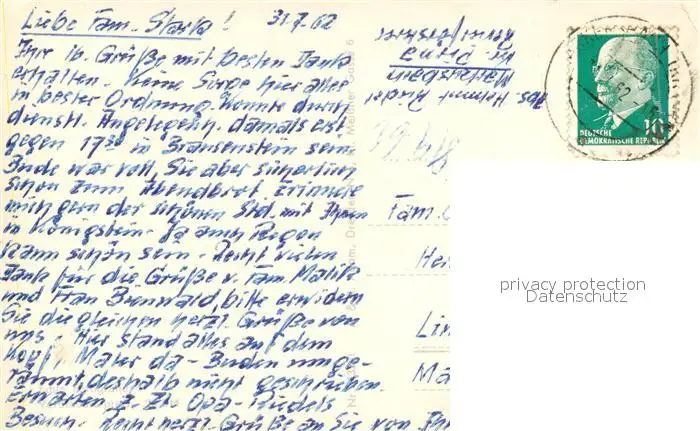 Liebe Fam. Starke! 31.7.62
Ihre lb. Grüße mit besten Dank
erhalten. Keine Sorge hier alles
in bester Ordnung. Konnte durch
dienstl. Angelegenh. damals erst
gegen 17³⁰ in Bärenstein sein.
Bude war voll, Sie aber
schon zum Abendbrot. Erinnere
mich gern der schönen Std. mit Ihnen
in Königstein. Ja auch Regen
kann schön sein. Recht vielen
Dank für die Grüße v. Fam. Malik
und Frau Bienwald, bitte erwidern
Sie die gleichen herzl. Grüße von
uns. Hier stand alles auf dem
Kopf. Maler da - Buden umge-
räumt, deshalb nicht geschrieben.
Erwarten z. Zt. Opa-Riedels
Besuch. Recht herzl. Grüße an Sie von Ihr
Abs. Helmut Riedel
Kr. Pirna
DEUTSCHE
DEMOKRATISCHE REPUBLIK
10
Fam.
privacy protection
Datenschutz